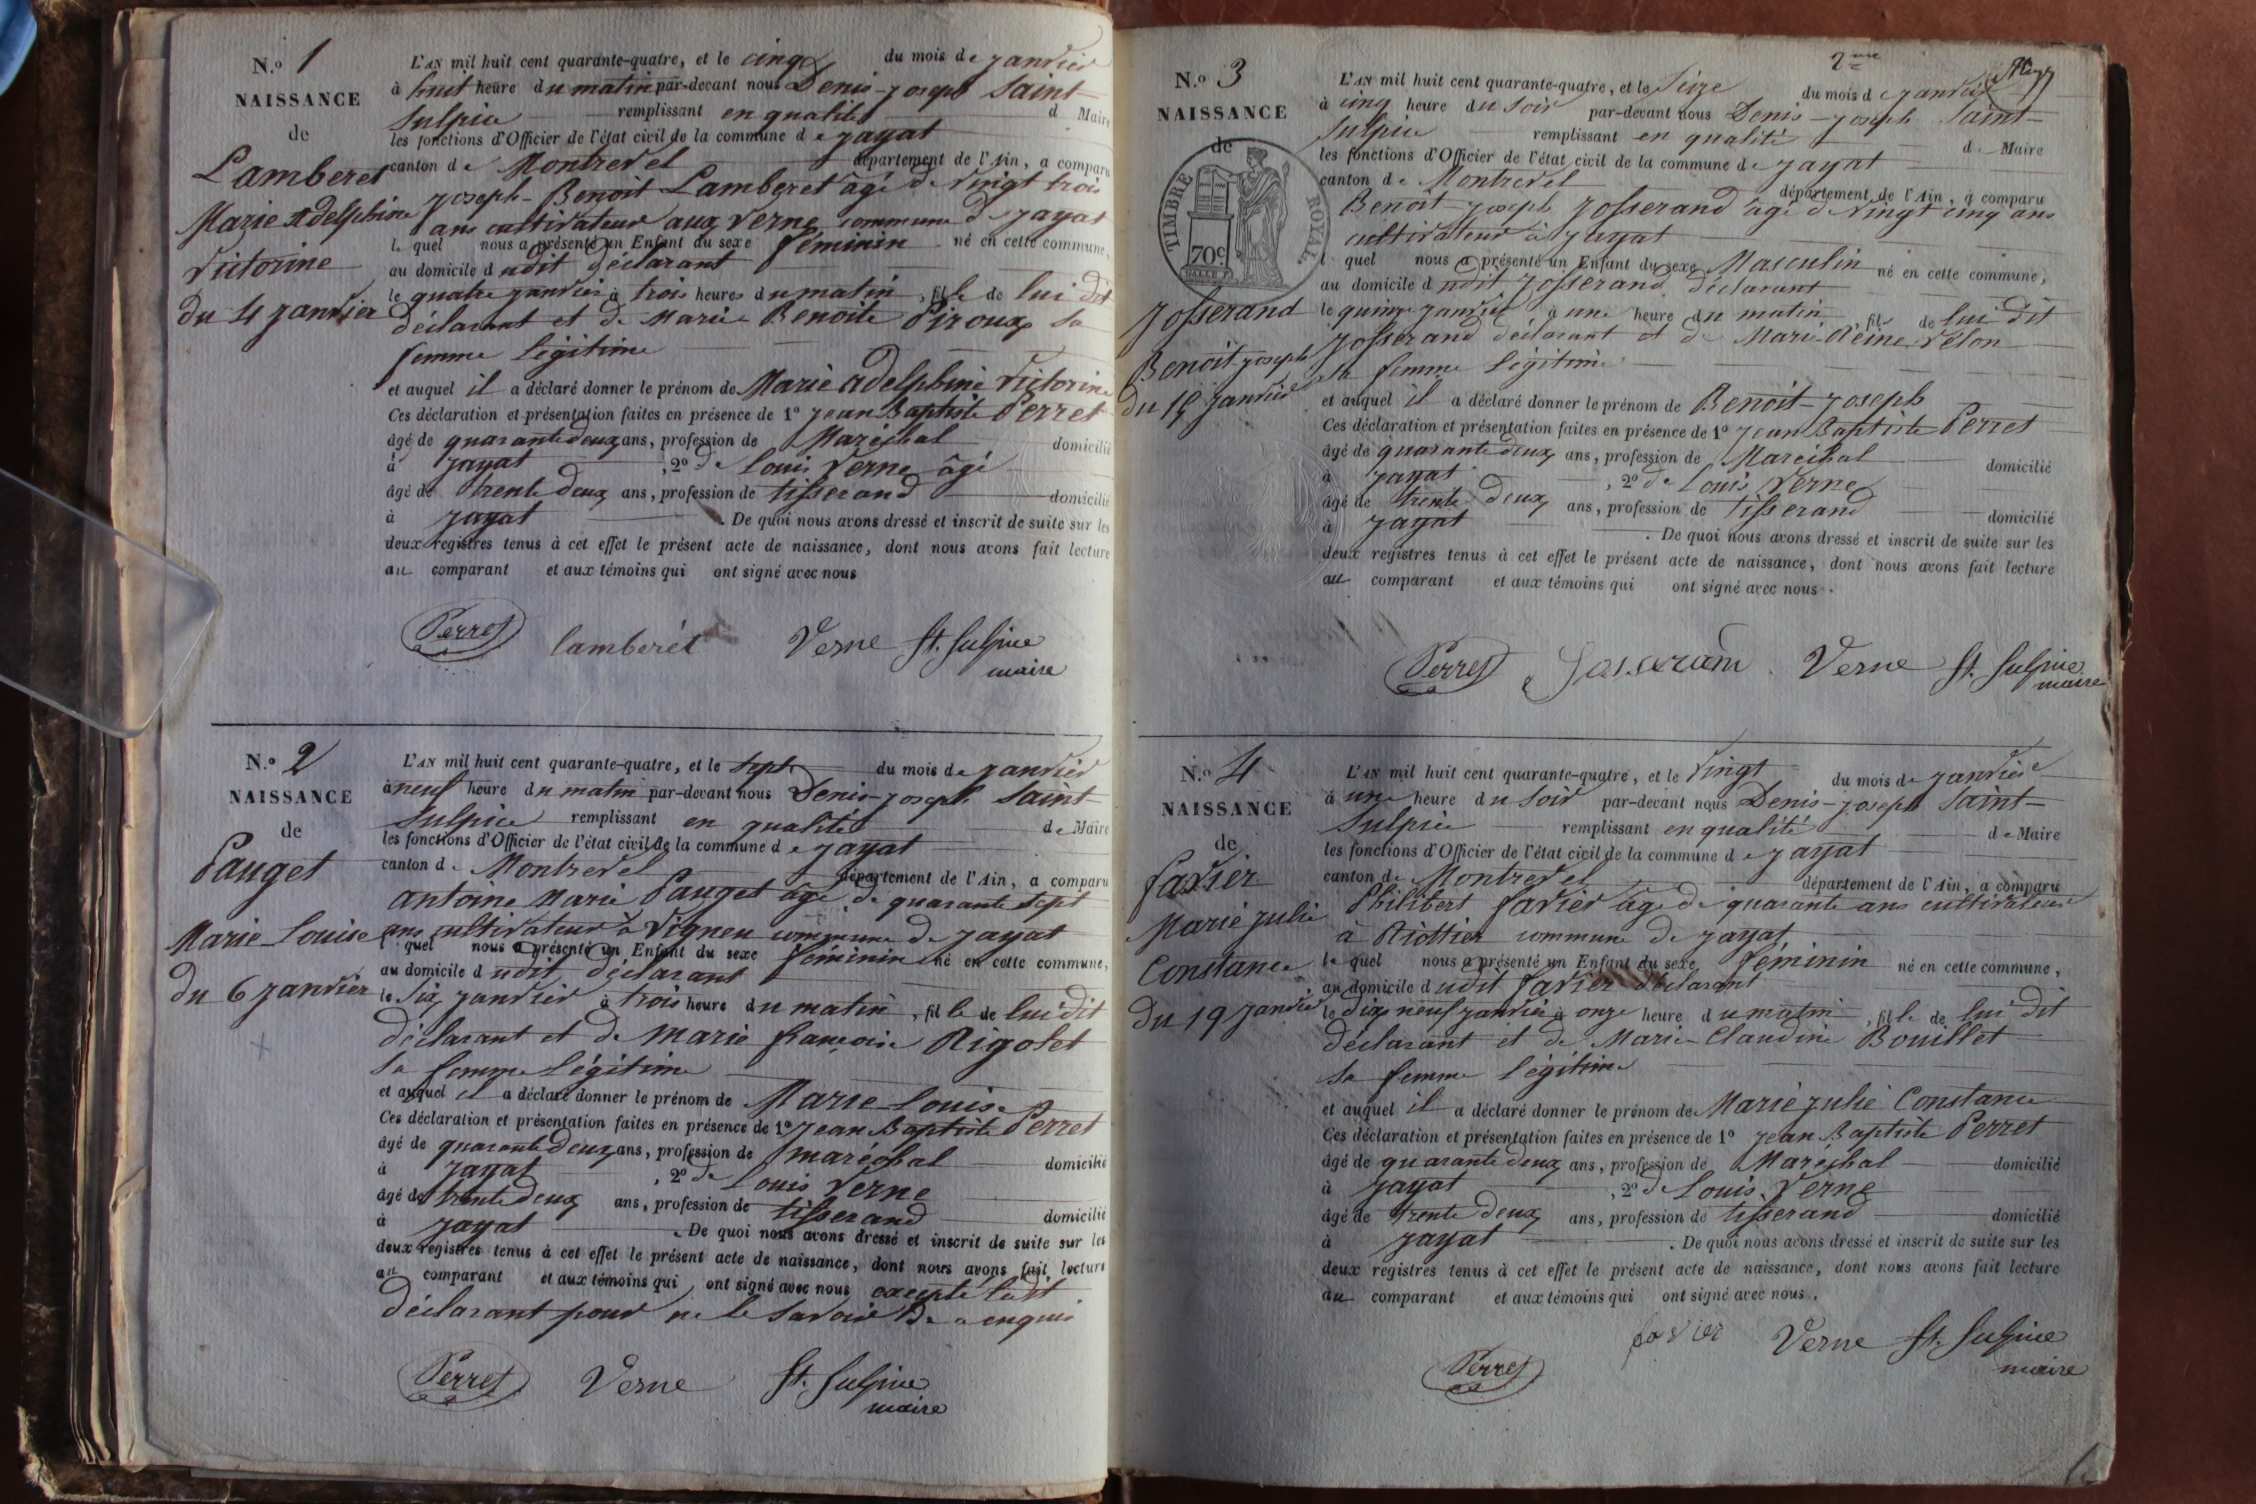 N.o 1
NAISSANCE
de
Lamberet
Marie Adelphine
Victorine
du 4 janvier
L'AN mil huit cent quarante-quatre, et le cinq du mois de janvier
à huit heure du matin par-devant nous Denis-joseph Saint-
Sulpice remplissant en qualité d Maire
les fonctions d'Officier de l'état civil de la commune de jayat
canton de Montrevel département de l'Ain, a comparu
joseph-Benoit Lamberet âgé de vingt trois
ans cultivateur aux Verne commune de jayat
le quel nous a présenté un Enfant du sexe féminin né en cette commune,
au domicile dudit déclarant
le quatre janvier à trois heures du matin, fille de lui dit
déclarant et de Marie Benoite Piroux sa
femme légitime
et auquel il a déclaré donner le prénom de Marie adelphine Victorine
Ces déclaration et présentation faites en présence de 1o jean Baptiste Perret
âgé de quarante deux ans, profession de Maréchal domicilié
à jayat, 2o de Louis Verne âgé
âgé de trente deux ans, profession de tisserand domicilié
à jayat. De quoi nous avons dressé et inscrit de suite sur les
deux registres tenus à cet effet le présent acte de naissance, dont nous avons fait lecture
au comparant et aux témoins qui ont signé avec nous
Perret lamberet Verne St. Sulpice
maire
N.o 2
NAISSANCE
de
Pauget
Marie Louise
du 6 janvier
L'AN mil huit cent quarante-quatre, et le sept du mois de janvier
à neuf heure du matin par-devant nous Denis-joseph Saint-
Sulpice remplissant en qualité de Maire
les fonctions d'Officier de l'état civil de la commune de jayat
canton de Montrevel département de l'Ain, a comparu
antoine Marie Pauget âgé de quarante sept
ans cultivateur à Vigneu commune de jayat
l quel nous a présenté un Enfant du sexe féminin né en cette commune,
au domicile dudit déclarant
le Six janvier à trois heure du matin, fille de lui dit
déclarant et de Marie françoise Rigolet
sa femme légitime
et auquel il a déclaré donner le prénom de Marie Louise
Ces déclaration et présentation faites en présence de 1o jean Baptiste Perret
âgé de quarante deux ans, profession de maréchal domicilié
à jayat, 2o de Louis Verne
âgé de trente deux ans, profession de tisserand domicilié
à jayat. De quoi nous avons dressé et inscrit de suite sur les
deux registres tenus à cet effet le présent acte de naissance, dont nous avons fait lecture
au comparant et aux témoins qui ont signé avec nous excepté ledit
déclarant pour ne le savoir De ce enquis
Perret Verne St. Sulpice
maire
2me
N.o 3
NAISSANCE
de
TIMBRE ROYAL
70c
josserand
Benoit joseph
du 15 janvier
L'AN mil huit cent quarante-quatre, et le Seize du mois de janvier
à cinq heure du soir par-devant nous Denis-joseph Saint-
Sulpice remplissant en qualité de Maire
les fonctions d'Officier de l'état civil de la commune de jayat
canton de Montrevel département de l'Ain, a comparu
Benoit joseph josserand âgé de vingt cinq ans
cultivateur à jayat
l quel nous a présenté un Enfant du sexe Masculin né en cette commune,
au domicile dudit josserand déclarant
le quinze janvier à une heure du matin, fils de lui dit
josserand déclarant et de Marie Reine Vélon
sa femme légitime
et auquel il a déclaré donner le prénom de Benoit-joseph
Ces déclaration et présentation faites en présence de 1o jean Baptiste Perret
âgé de quarante deux ans, profession de Maréchal domicilié
à jayat, 2o de Louis Verne
âgé de trente deux ans, profession de tisserand domicilié
à jayat. De quoi nous avons dressé et inscrit de suite sur les
deux registres tenus à cet effet le présent acte de naissance, dont nous avons fait lecture
au comparant et aux témoins qui ont signé avec nous.
Perret Verne St. Sulpice
maire
N.o 4
NAISSANCE
de
favier
Marie julie
Constance
du 19 janvier
L'AN mil huit cent quarante-quatre, et le vingt du mois de janvier
à une heure du soir par-devant nous Denis-joseph Saint-
Sulpice remplissant en qualité de Maire
les fonctions d'Officier de l'état civil de la commune de jayat
canton de Montrevel département de l'Ain, a comparu
Philibert favier âgé de quarante ans cultivateur
à Riottier commune de jayat
le quel nous a présenté un Enfant du sexe féminin né en cette commune,
au domicile dudit favier déclarant
le dix neuf janvier à onze heure du matin, fille de lui dit
déclarant et de Marie Claudine Bouillet
sa femme légitime
et auquel il a déclaré donner le prénom de Marie julie Constance
Ces déclaration et présentation faites en présence de 1o jean Baptiste Perret
âgé de quarante deux ans, profession de Maréchal domicilié
à jayat, 2o de Louis Verne
âgé de trente deux ans, profession de tisserand domicilié
à jayat. De quoi nous avons dressé et inscrit de suite sur les
deux registres tenus à cet effet le présent acte de naissance, dont nous avons fait lecture
au comparant et aux témoins qui ont signé avec nous.
favier Verne St. Sulpice
Perret maire